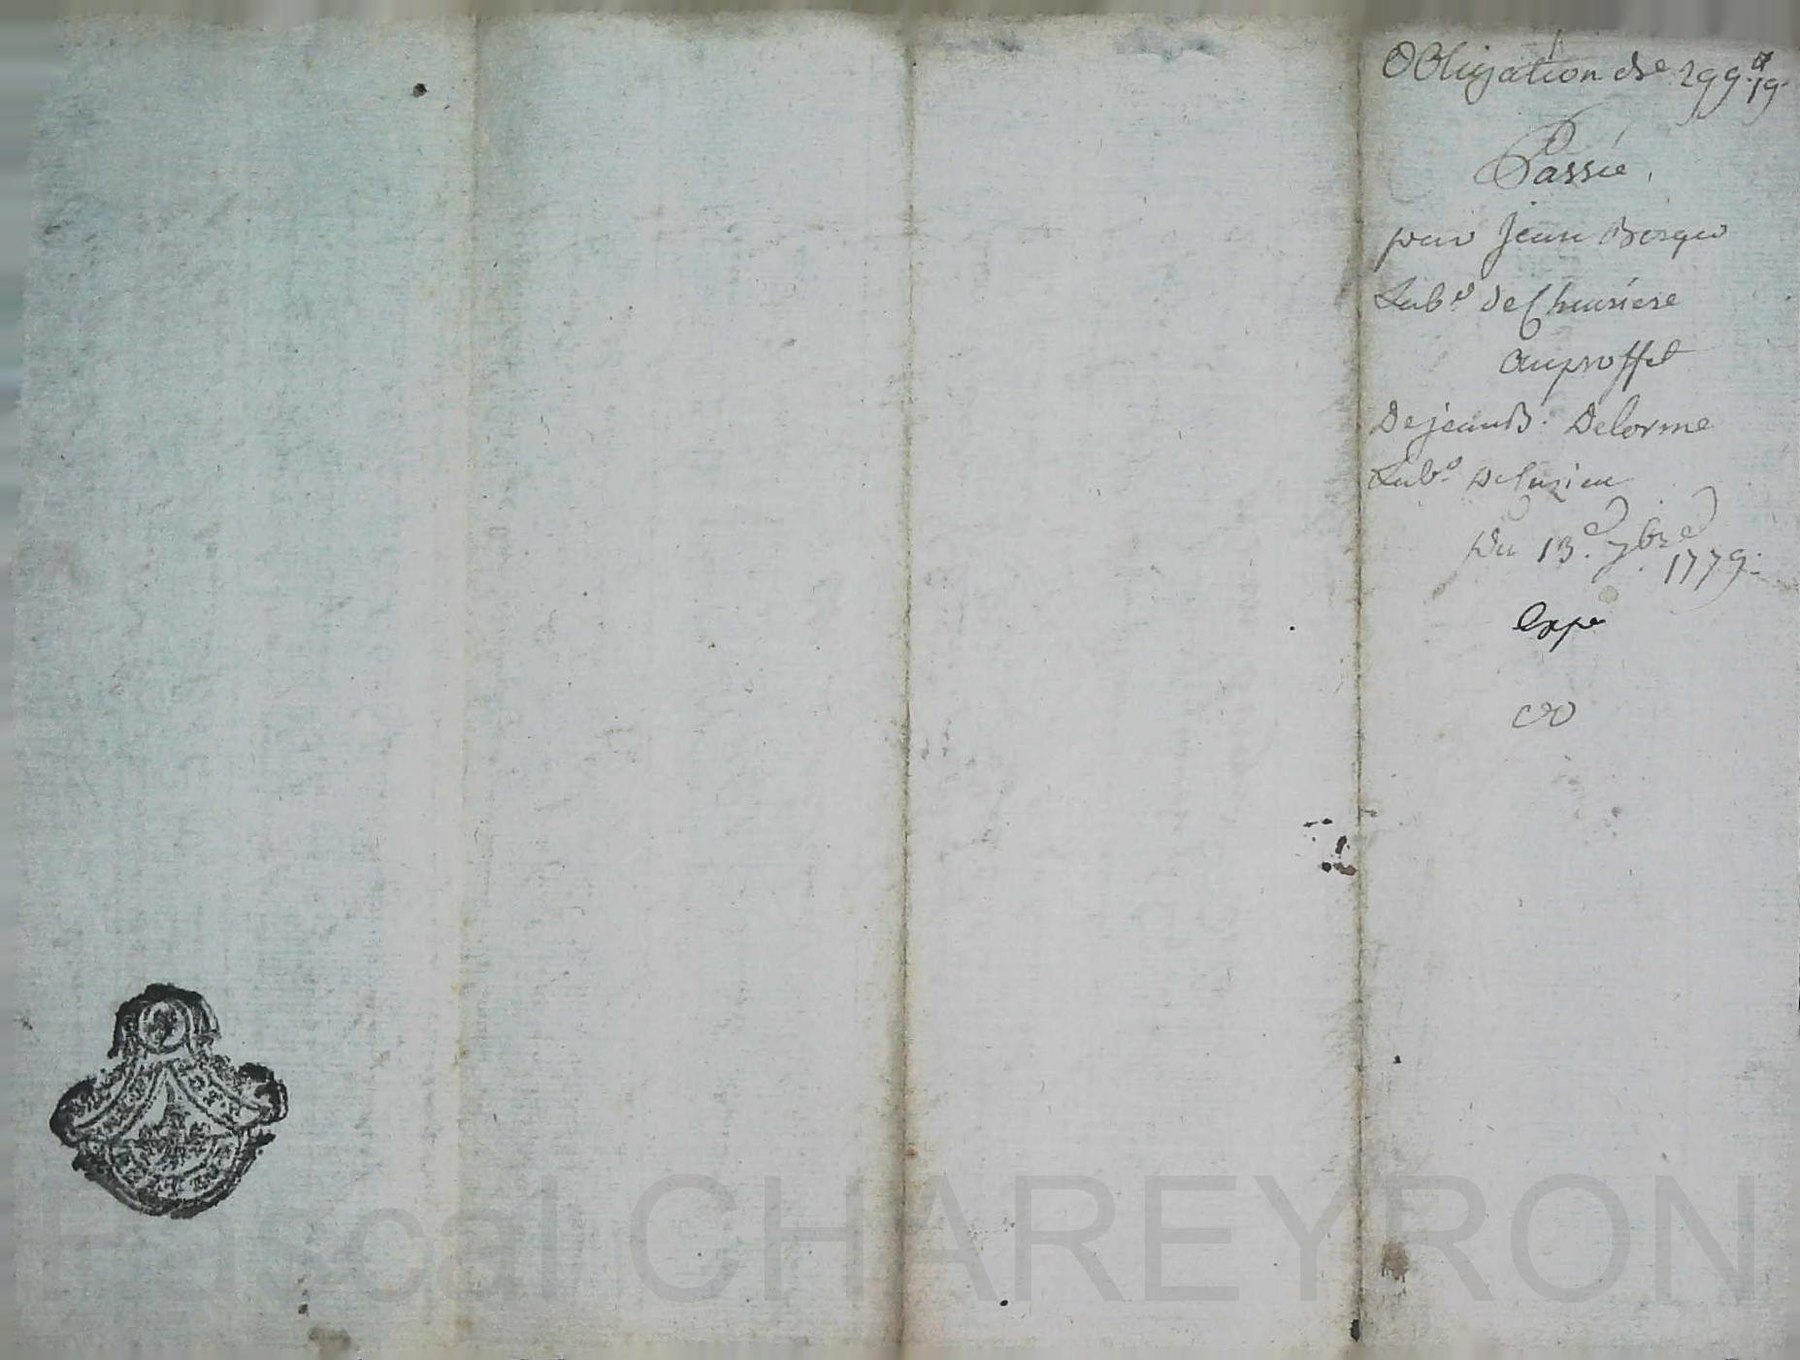 Obligation de 299.# 19.
Passée
par Jean Bosqu
hab.t de Churiere
au proffet
De jean B. Delorme
hab.t De lurieu
Du 13.e 7bre 1779.
Expe
Pascal CHAREYRON